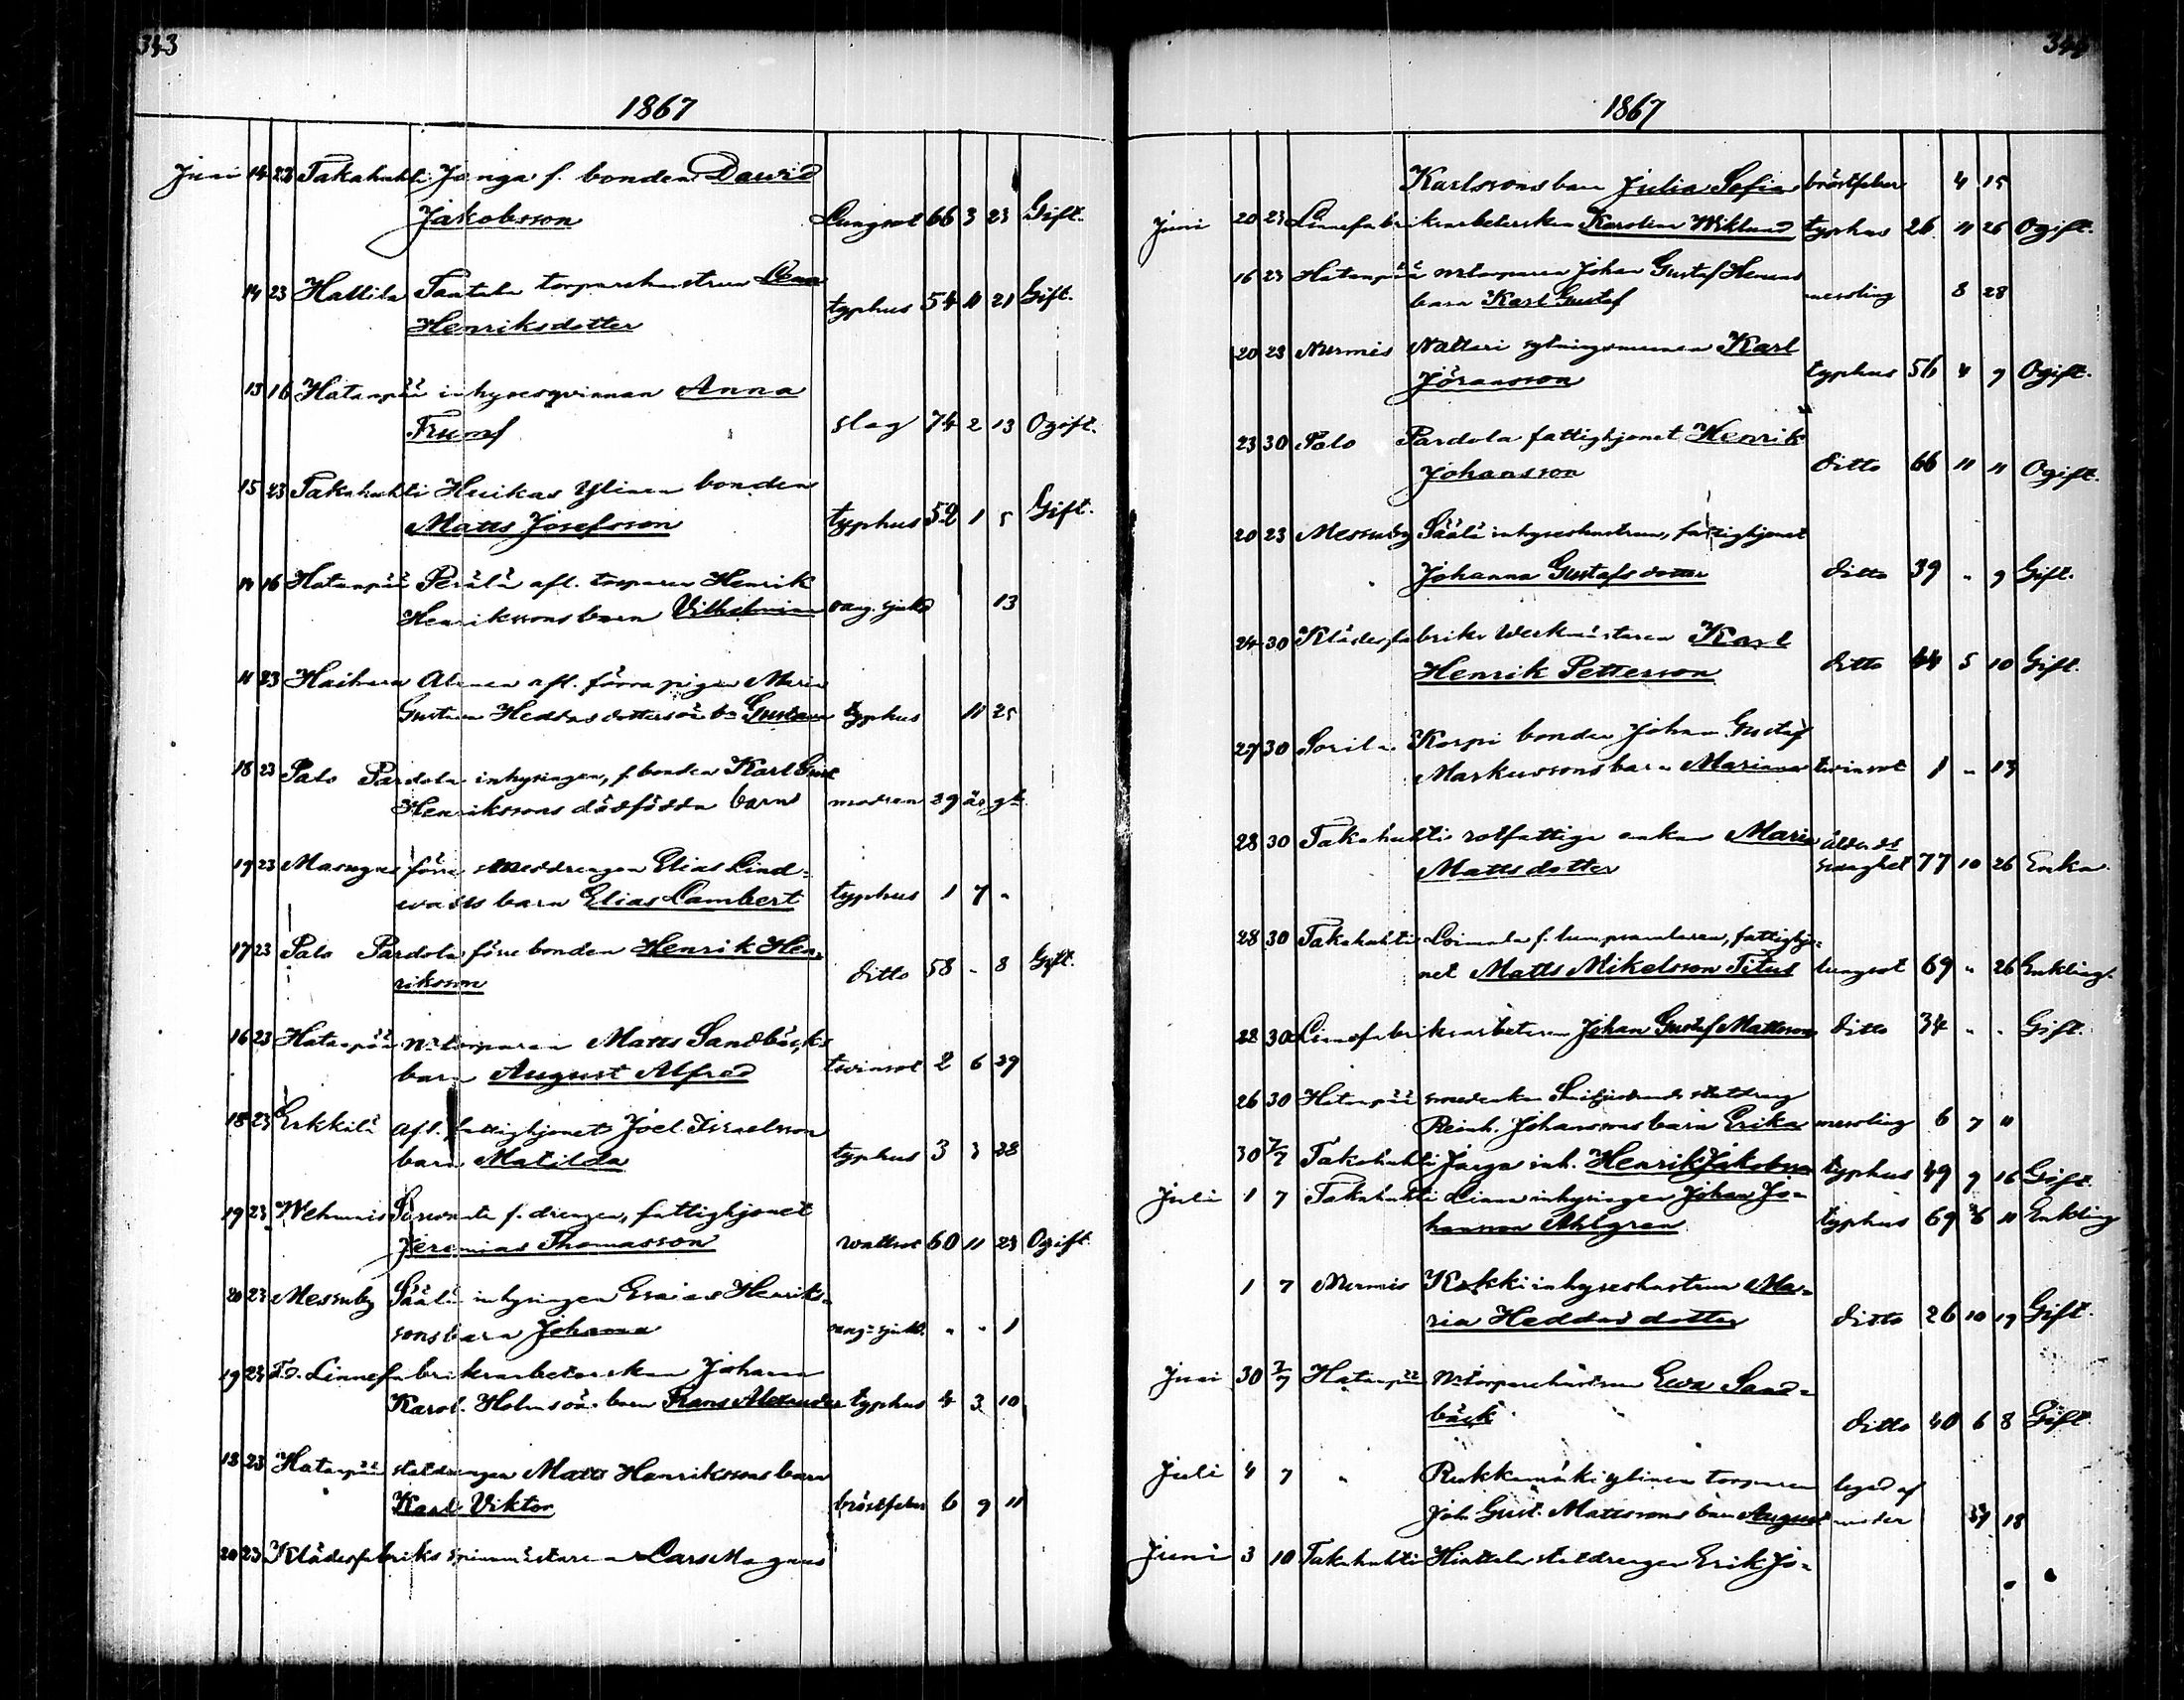 343
1867
Juni 14 23 Takahuhti Janga f. bonden David
Jakobsson Lungsot 66 3 23 Gift.
14 23 Hallila Taatala torparehustrun Lena
Henriksdotter typhus 54 11 21 Gift.
13 16 Hatanpää inhysesqvinnan Anna
slag 74 2 13 Ogift.
15 23 Takahuhti Huikas Ylinen bonden
Matts Josefsson typhus 52 1 5 Gift.
14 16 Hatanpää Perälä afl. torparen Henrik
Henrikssons barn Vilhelmina 13
11 23 Haihara afl. förra pigan Maria
Heddasdotters typhus 11 25
18 23 Palo Pardola inhysingen, f. bonden Karl Gust
Henrikssons dödfödda barn modren 39 år gl.
19 23 förre smeddrengen Elias Lind-
barn Elias Lambert typhus 1 7 "
17 23 Palo Pardola förre bonden Henrik Hen-
riksson ditto 58 - 8 Gift.
16 23 Hatanpää Matts Sandbäcks
barn August Alfred twinsot 2 6 29
18 23 Erkkilä afl. fattighjonet Joel Israelsson
barn Matilda typhus 3 3 28
19 23 Wehmais f. drengen, fattighjonet
Jeremias Thomasson wattsot 60 11 23 Ogift
20 23 Messuby Säälä inhysingen Esaias Henriks-
sons barn Johanna " " 1
19 23 Linnefabriksarbeterskan Johanna
Karol. Holms barn Frans Alexander typhus 4 3 10
18 23 Hatanpää statdrengen Matts Henrikssons barn
Karl Viktor bröstfeber 6 9 11
20 23 Klädesfabriks spinnmästaren Lars Magnus
344
1867
Karlssons barn Julia Sofia bröstfeber 4 15
Juni 20 23 Linnefabriksarbeterskan Karolina Wiklund typhus 26 11 26 Ogift.
16 23 Hatanpää Johan Gustaf
barn Karl Gustaf messling 8 28
20 23 Nurmis Nattari sytningsmannen Karl
Jöransson typhus 56 4 9 Ogift.
23 30 Palo Pardola fattighjonet Henrik
Johansson ditto 66 11 11 Ogift.
20 23 Messuby Säälä inhyseshustrun, fattighjonet
Johanna Gustafsdotter ditto 39 " 9 Gift.
24 30 Klädesfabriks Werkmästaren Karl
Henrik Petterson ditto 44 5 10 Gift.
27 30 Sorila Korpi bonden Johan Gustaf
Markussons barn Mariana twinsot 1 " 13
28 30 Takahuhti rotfattiga enkan Maria
Mattsdotter ålderds swaghet 77 10 26 Enka.
28 30 Takahuhti f. lumpsamlaren, fattighjo-
net Matts Mikelsson Titus lungsot 69 " 26 Enkling.
28 30 Linnefabriksarbetaren Johan Gustaf Mattsson ditto 34 " " Gift.
26 30 Hatanpää statdreng
Reinh. Johanssons barn Erika messling 6 7 11
30 7/7 Takahuhti Janga inh. Henrik Jakobsson typhus 49 9 16 Gift.
Juli 1 7 Takahuhti Liuna inhysingen Johan Jo-
hansson Ahlgren typhus 69 6 11 Enkling
1 7 Nurmis Kokki inhyseshustrun Ma-
ria Heddasdotter ditto 26 10 19 Gift.
Juni 30 7/7 Hatanpää Ewa Sand-
bäck ditto 40 6 8 Gift.
Juli 4 7 " Rukkamäki ylinen torparen
Joh. Gust. Mattssons barn August legad af moder 13
Juni 3 10 Takahuhti Hirttala statdrengen Erik Jo-